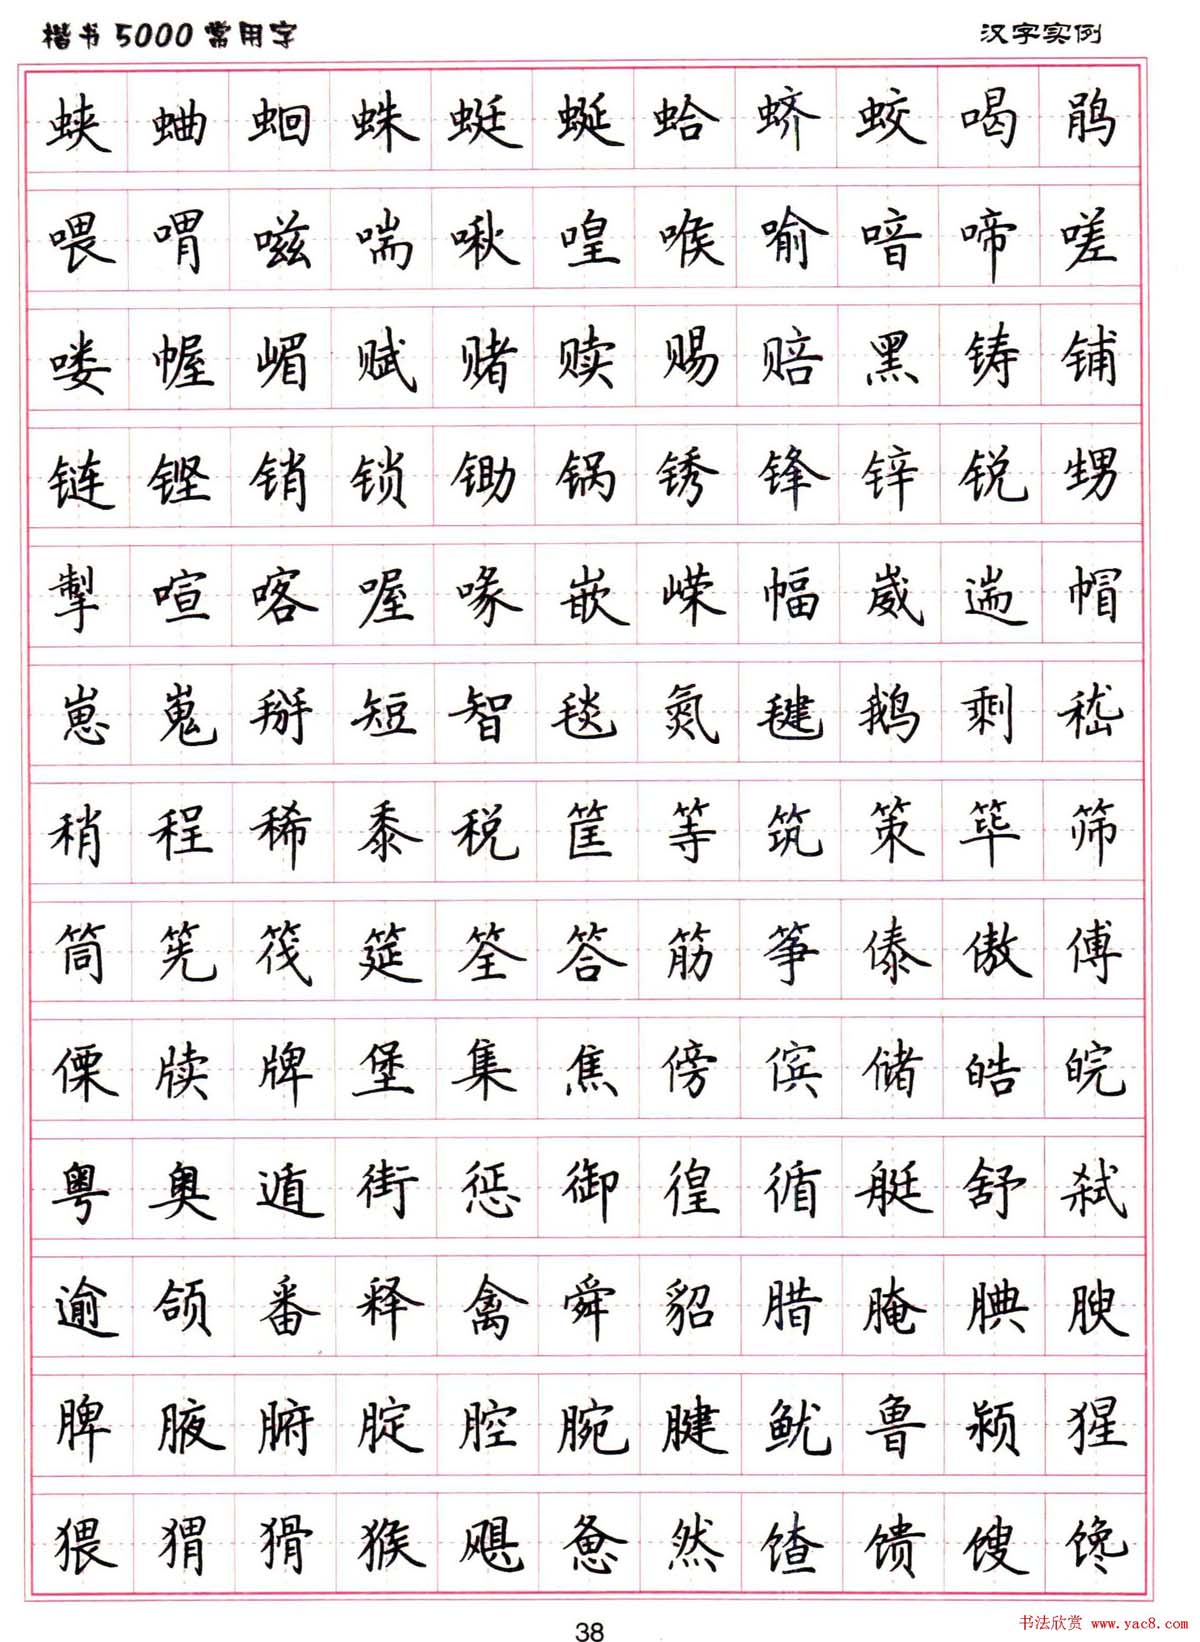 楷书5000常用字 汉字实例
蛱 蛐 蛔 蛛 蜓 蜒 蛤 蛴 蛟 喝 鹃
喂 喟 嗞 喘 啾 喤 喉 喻 喑 啼 嗟
喽 幄 嵋 赋 赌 赎 赐 赔 黑 铸 铺
链 铿 销 锁 锄 锅 锈 锋 锌 锐 甥
掣 喧 喀 喔 喙 嵌 嵘 幅 崴 遄 帽
崽 嵬 掰 短 智 毯 氮 毽 鹅 剩 嵇
稍 程 稀 黍 税 筐 等 筑 策 筚 筛
筒 筅 筏 筵 筌 答 筋 筝 傣 傲 傅
傈 牍 牌 堡 集 焦 傍 傧 储 皓 皖
粤 奥 遁 街 惩 御 徨 循 艇 舒 弑
逾 颌 番 释 禽 舜 貂 腊 腌 腆 腴
脾 腋 腑 腚 腔 腕 腱 鱿 鲁 颍 猩
猥 猬 猾 猴 飓 惫 然 馇 馈 馊 馋
38
书法欣赏 www.yac8.com